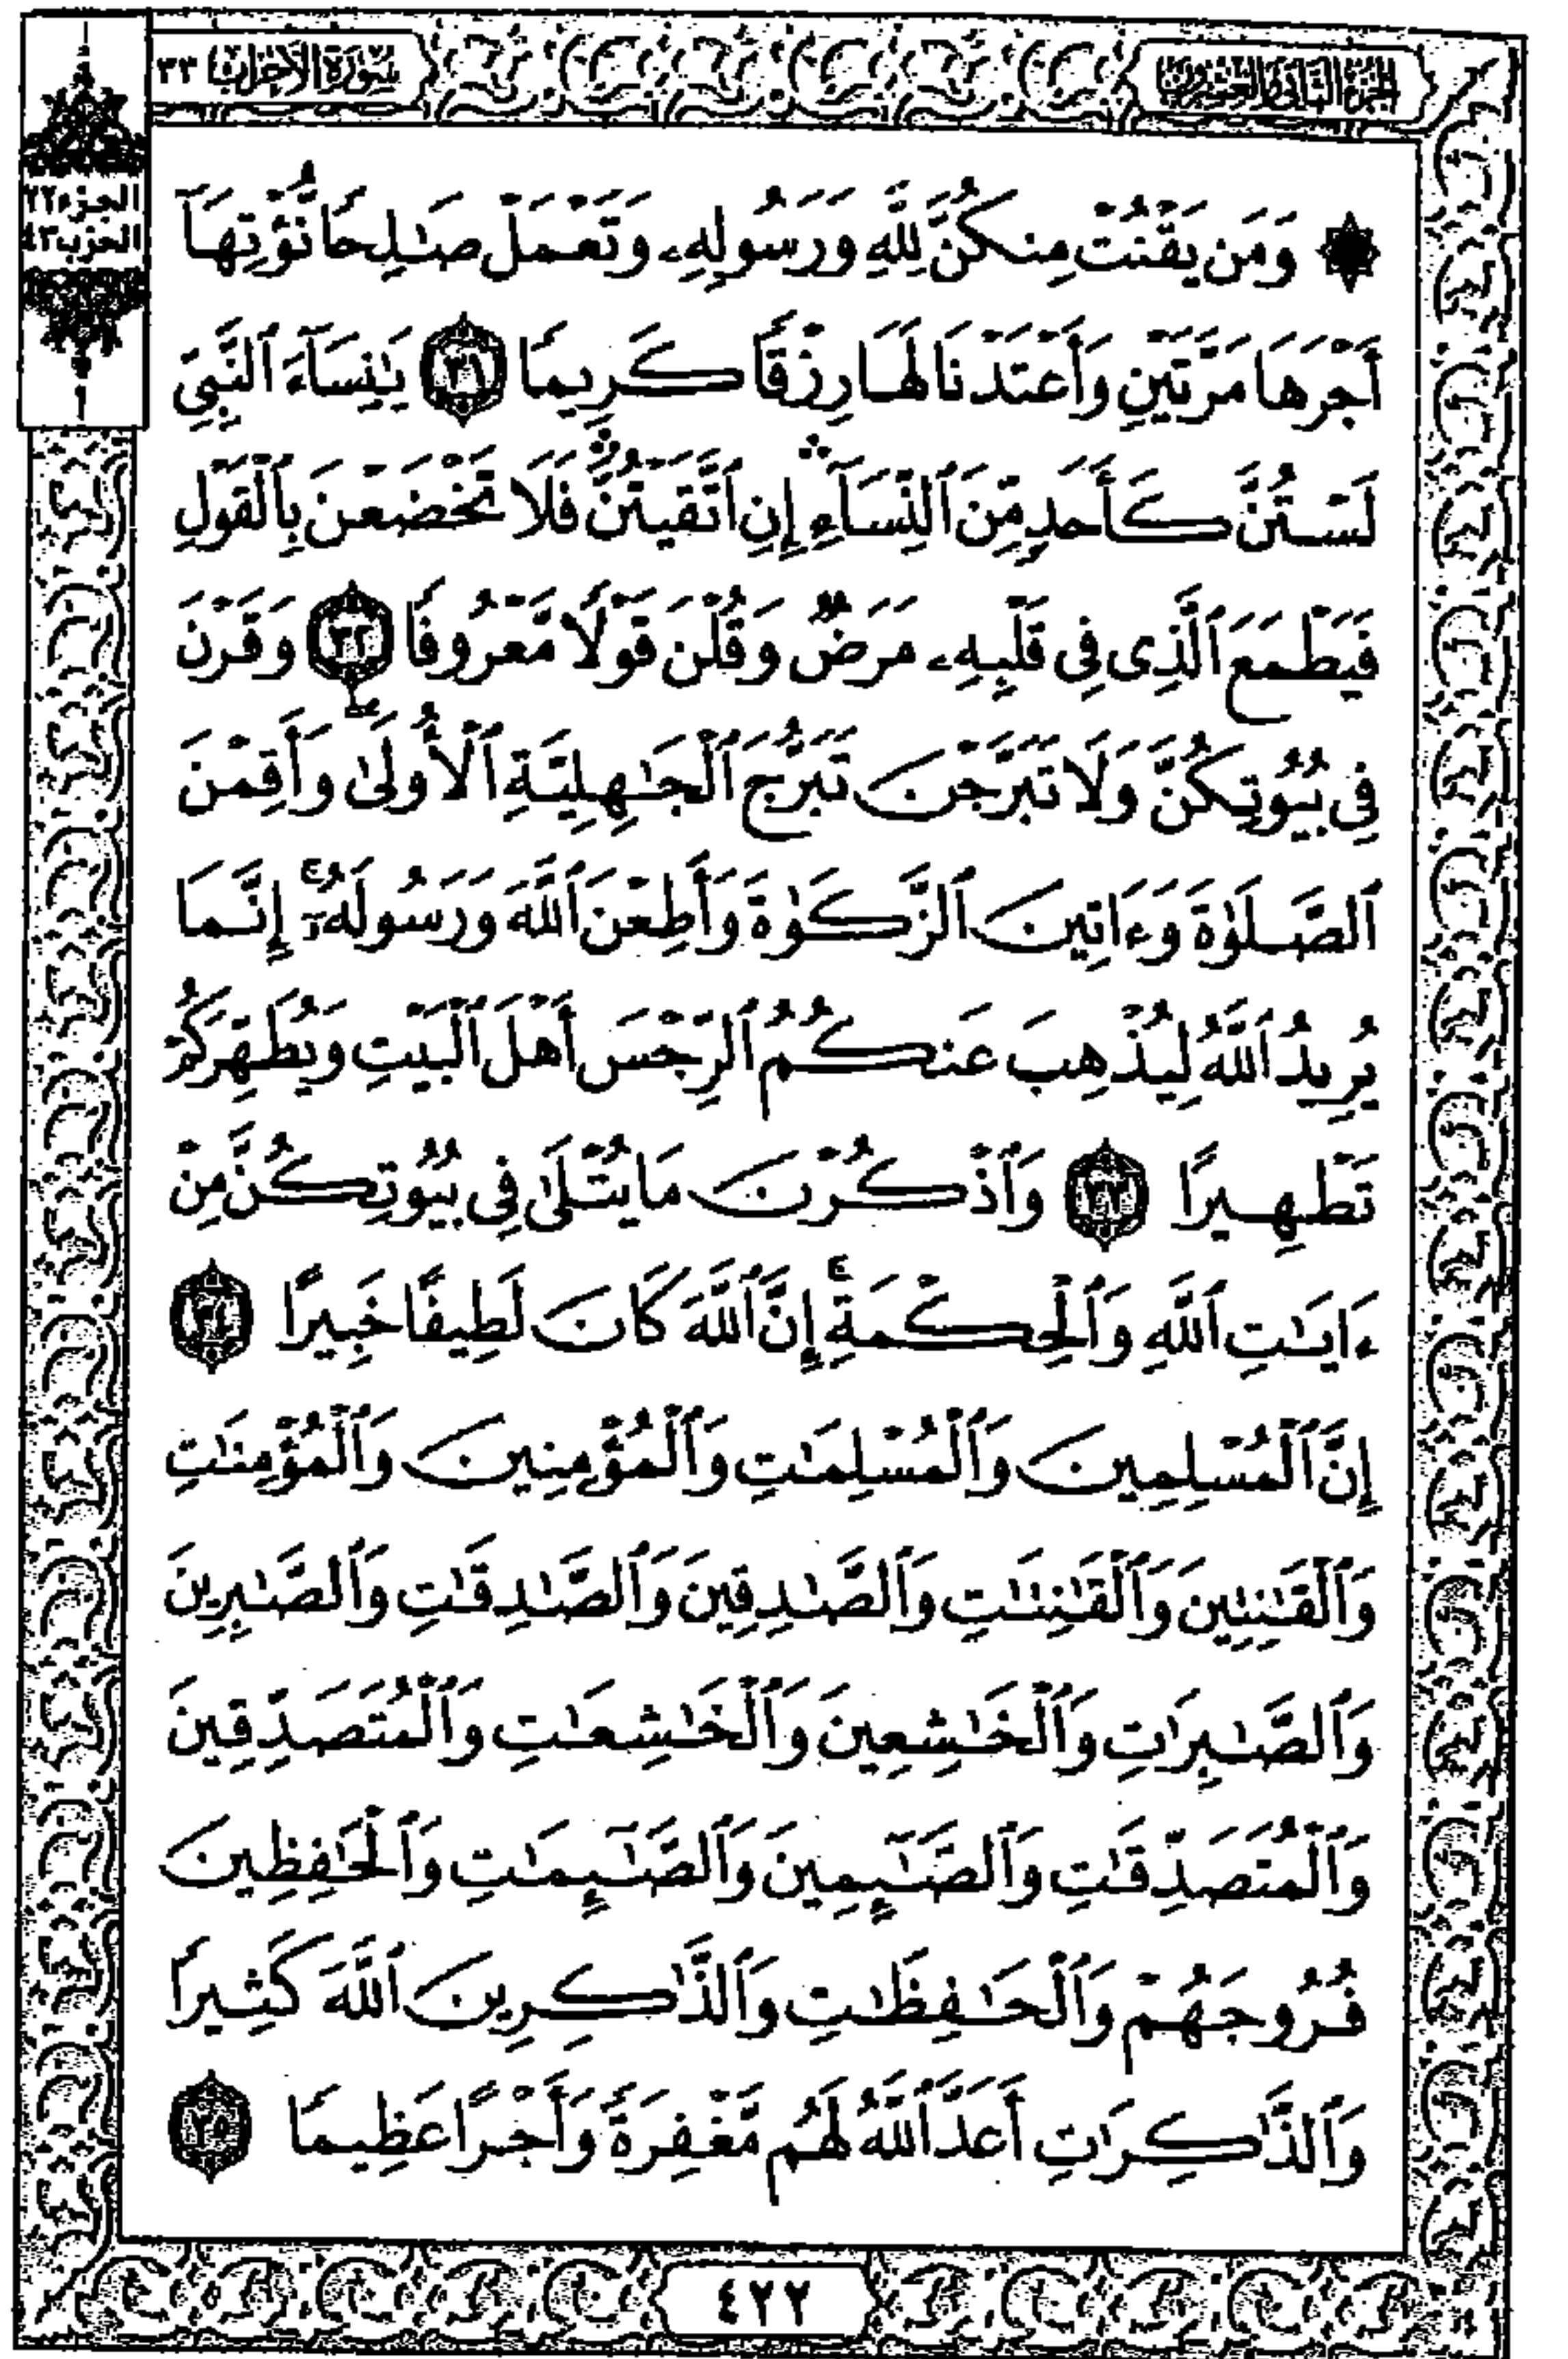 الجزء الثاني والعشرون
سورة الأحزاب ٣٣
الجزء ٢٢
الحزب ٤٣
۞ وَمَن يَقْنُتْ مِنكُنَّ لِلَّهِ وَرَسُولِهِۦ وَتَعْمَلْ صَٰلِحًا نُّؤْتِهَآ
أَجْرَهَا مَرَّتَيْنِ وَأَعْتَدْنَا لَهَا رِزْقًا كَرِيمًا ٣١ يَٰنِسَآءَ ٱلنَّبِيِّ
لَسْتُنَّ كَأَحَدٍ مِّنَ ٱلنِّسَآءِ ۛ إِنِ ٱتَّقَيْتُنَّ ۛ فَلَا تَخْضَعْنَ بِٱلْقَوْلِ
فَيَطْمَعَ ٱلَّذِى فِى قَلْبِهِۦ مَرَضٌ وَقُلْنَ قَوْلًا مَّعْرُوفًا ٣٢ وَقَرْنَ
فِى بُيُوتِكُنَّ وَلَا تَبَرَّجْنَ تَبَرُّجَ ٱلْجَٰهِلِيَّةِ ٱلْأُولَىٰ وَأَقِمْنَ
ٱلصَّلَوٰةَ وَءَاتِينَ ٱلزَّكَوٰةَ وَأَطِعْنَ ٱللَّهَ وَرَسُولَهُۥٓ ۚ إِنَّمَا
يُرِيدُ ٱللَّهُ لِيُذْهِبَ عَنكُمُ ٱلرِّجْسَ أَهْلَ ٱلْبَيْتِ وَيُطَهِّرَكُمْ
تَطْهِيرًا ٣٣ وَٱذْكُرْنَ مَا يُتْلَىٰ فِى بُيُوتِكُنَّ مِنْ
ءَايَٰتِ ٱللَّهِ وَٱلْحِكْمَةِ ۚ إِنَّ ٱللَّهَ كَانَ لَطِيفًا خَبِيرًا ٣٤
إِنَّ ٱلْمُسْلِمِينَ وَٱلْمُسْلِمَٰتِ وَٱلْمُؤْمِنِينَ وَٱلْمُؤْمِنَٰتِ
وَٱلْقَٰنِتِينَ وَٱلْقَٰنِتَٰتِ وَٱلصَّٰدِقِينَ وَٱلصَّٰدِقَٰتِ وَٱلصَّٰبِرِينَ
وَٱلصَّٰبِرَٰتِ وَٱلْخَٰشِعِينَ وَٱلْخَٰشِعَٰتِ وَٱلْمُتَصَدِّقِينَ
وَٱلْمُتَصَدِّقَٰتِ وَٱلصَّٰٓئِمِينَ وَٱلصَّٰٓئِمَٰتِ وَٱلْحَٰفِظِينَ
فُرُوجَهُمْ وَٱلْحَٰفِظَٰتِ وَٱلذَّٰكِرِينَ ٱللَّهَ كَثِيرًا
وَٱلذَّٰكِرَٰتِ أَعَدَّ ٱللَّهُ لَهُم مَّغْفِرَةً وَأَجْرًا عَظِيمًا ٣٥
٤٢٢